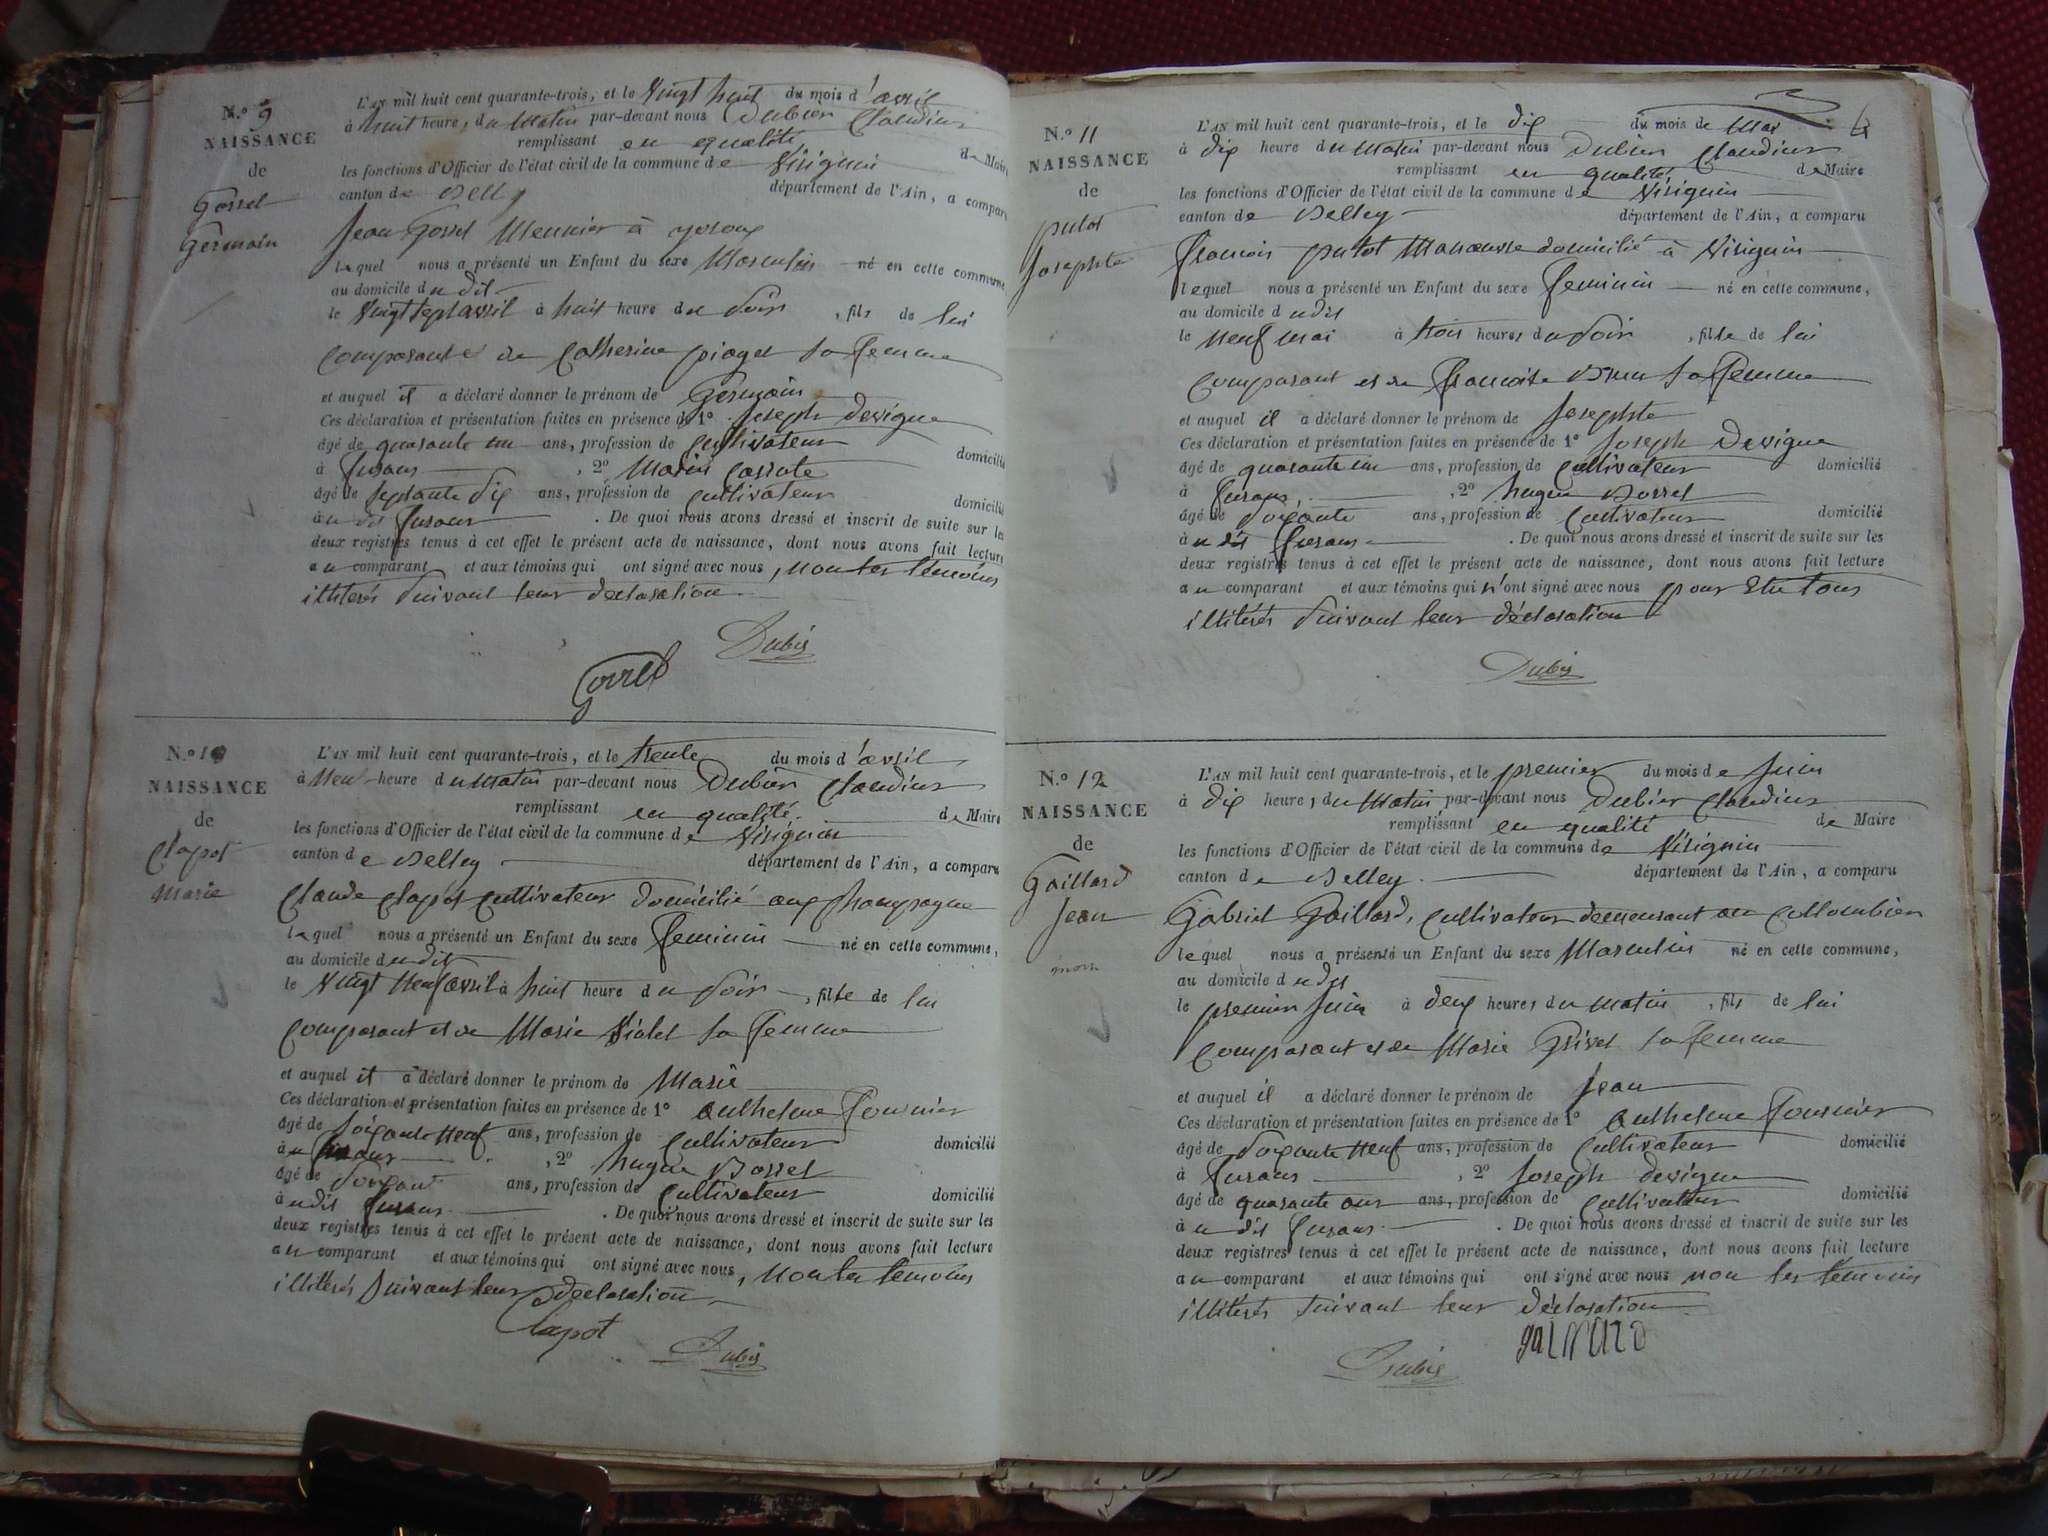 N.º 9
NAISSANCE
de
Gorret
Germain
L'AN mil huit cent quarante-trois, et le vingt huit du mois d'avril
à huit heure, du matin par-devant nous Dubier Claudius
remplissant en qualité de Maire
les fonctions d'Officier de l'état civil de la commune de Virignin
canton de Belley département de l'Ain, a comparu
Jean Gorret Meunier à
lequel nous a présenté un Enfant du sexe Masculin né en cette commune
au domicile du dit
le vingt sept avril à huit heure du soir, fils de lui
comparant et de Catherine pioget sa femme
et auquel il a déclaré donner le prénom de Germain
Ces déclaration et présentation faites en présence de 1º Joseph Devigne
âgé de quarante un ans, profession de cultivateur domicilié
à furans, 2º Marin Carrote
âgé de septante dix ans, profession de cultivateur domicilié
à u dit furans. De quoi nous avons dressé et inscrit de suite sur les
deux registres tenus à cet effet le présent acte de naissance, dont nous avons fait lecture
au comparant et aux témoins qui ont signé avec nous, non les témoins
illitérés suivant leur déclaration.
Dubier
Gorret
N.º 10
NAISSANCE
de
Clapot
Marie
L'AN mil huit cent quarante-trois, et le trente du mois d'avril
à neuf heure du matin par-devant nous Dubier Claudius
remplissant en qualité de Maire
les fonctions d'Officier de l'état civil de la commune de Virignin
canton de Belley département de l'Ain, a comparu
Claude Clapot cultivateur domicilié aux Champagne
lequel nous a présenté un Enfant du sexe feminin né en cette commune,
au domicile du dit
le vingt neuf avril à huit heure du soir, fille de lui
comparant et de Marie Violet sa femme
et auquel il a déclaré donner le prénom de Marie
Ces déclaration et présentation faites en présence de 1º Anthelme Fournier
âgé de soixante neuf ans, profession de cultivateur domicilié
au furans, 2º hugue Borret
âgé de soixante ans, profession de cultivateur domicilié
à u dit furans. De quoi nous avons dressé et inscrit de suite sur les
deux registres tenus à cet effet le présent acte de naissance, dont nous avons fait lecture
au comparant et aux témoins qui ont signé avec nous, non les témoins
illitérés suivant leur déclaration
Clapot
Dubier
N.º 11
NAISSANCE
de
putot
Josephte
L'AN mil huit cent quarante-trois, et le dix du mois de Mai
à dix heure du matin par-devant nous Dubier Claudius
remplissant en qualité de Maire
les fonctions d'Officier de l'état civil de la commune de Virignin
canton de Belley département de l'Ain, a comparu
françois putot Manœuvre domicilié à Virignin
lequel nous a présenté un Enfant du sexe feminin né en cette commune,
au domicile du dit
le neuf mai à trois heures du soir, fille de lui
comparant et de françoise Brun sa femme
et auquel il a déclaré donner le prénom de Josephte
Ces déclaration et présentation faites en présence de 1º Joseph Devigne
âgé de quarante un ans, profession de cultivateur domicilié
à furans, 2º hugue Borret
âgé de soixante ans, profession de cultivateur domicilié
à u dit furans. De quoi nous avons dressé et inscrit de suite sur les
deux registres tenus à cet effet le présent acte de naissance, dont nous avons fait lecture
au comparant et aux témoins qui n'ont signé avec nous pour être tous
illitérés suivant leur déclaration
Dubier
N.º 12
NAISSANCE
de
Gaillard
Jean
mort
L'AN mil huit cent quarante-trois, et le premier du mois de Juin
à dix heure, du matin par-devant nous Dubier Claudius
remplissant en qualité de Maire
les fonctions d'Officier de l'état civil de la commune de Virignin
canton de Belley département de l'Ain, a comparu
Gabriel Gaillard, cultivateur demeurant au Collombier
lequel nous a présenté un Enfant du sexe Masculin né en cette commune,
au domicile du dit
le premier Juin à deux heures du matin, fils de lui
comparant et de Marie Grivet sa femme
et auquel il a déclaré donner le prénom de Jean
Ces déclaration et présentation faites en présence de 1º Anthelme Fournier
âgé de soixante neuf ans, profession de cultivateur domicilié
à furans, 2º Joseph Devigne
âgé de quarante ans, profession de cultivateur domicilié
à u dit furans. De quoi nous avons dressé et inscrit de suite sur les
deux registres tenus à cet effet le présent acte de naissance, dont nous avons fait lecture
au comparant et aux témoins qui ont signé avec nous non les témoins
illitérés suivant leur déclaration
Dubier